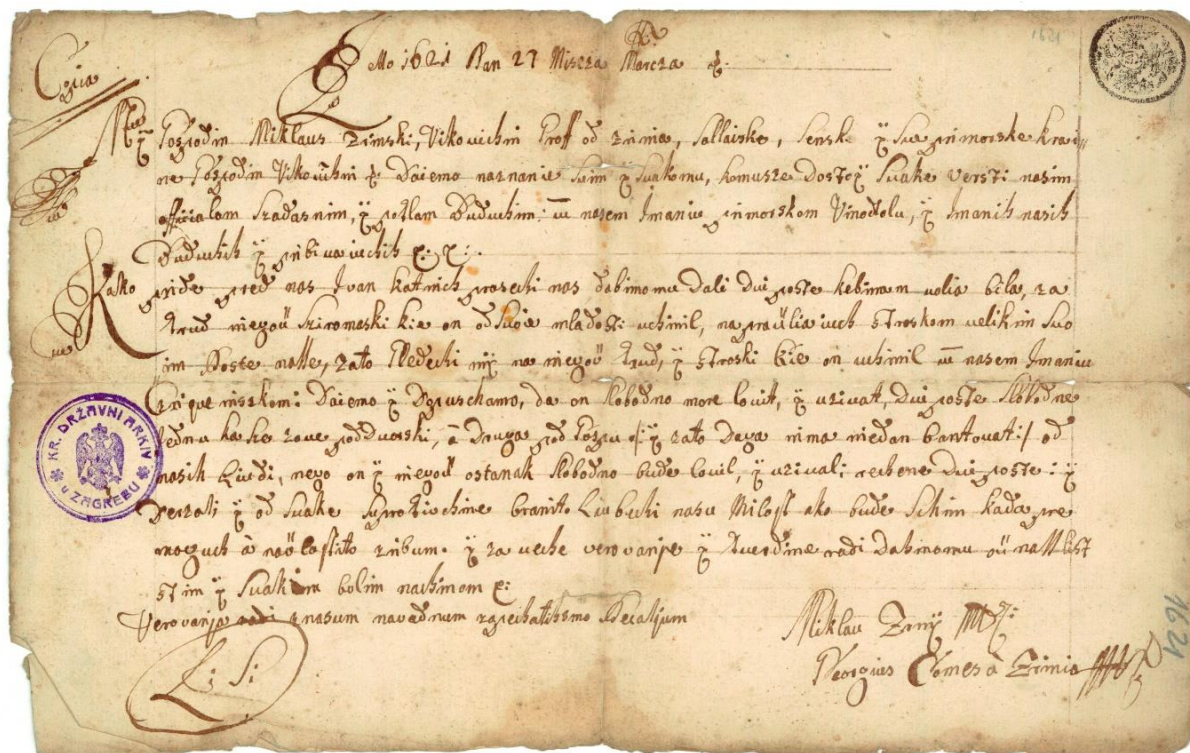 Copia
1621 Dan 27 Miszza Marcza
1621
Mÿ Gozpodin Miklaus Zrinski, Vikovichni Groff od Zrinia, Sallaiske, Senske ÿ Sue primorske krai
ne Gozpodin Vikovichni &: Daiemo naznanie Suim ÿ Suakomu, komusze Dostoÿ Suake versti nasim
officialom Szadasnim, ÿ potlam Buduchim: u nasem Imaniu primorskom Vinodolu, ÿ Imanih nasih
Buduchih ÿ pribivaiuchih &: &:
Kako pride pred nas Ivan Katnich prosechi nas dabimomu dali dui poste kebinam volia bila, za
trud niegoū Sziromaski kie on od Suoie mladosti uchinil, napraūliaiuch stroskom velikim Suo
im Poste nasse, zato Gledechi mÿ na niegoū trud, ÿ stroski kie on uchinil u nasem Imaniu
Crique niskom: Daiemo ÿ Dopuschamo, da on slobodno more lovit, ÿ uzivat, Dui poste slobodne
Jednu kase zove poddvorski, à Druga pod /: ÿ zato Dega nima niedan bantovati :/ od
nasih Liudi, nego on ÿ niegoū ostanak slobodno bude lovil, ÿ uzivali rechene Dui poste: ÿ
Derzali ÿ od Suake suprotivchine branit. Liubechi nasu Milost ako bude Schim kada pre
moguch à naūlastito ribum. ÿ za veche verovanje ÿ tverdine radi Dabimomu oū nass List
stim ÿ Suakim bolim nachinom &:
Verovanja radi znasum navadnum zapechatihsmo Pecatjum
L: S:
Miklau Zrinÿ
Georgius Comes à Zrinio
KR. DRŽAVNI ARKIV
U ZAGREBU
1621